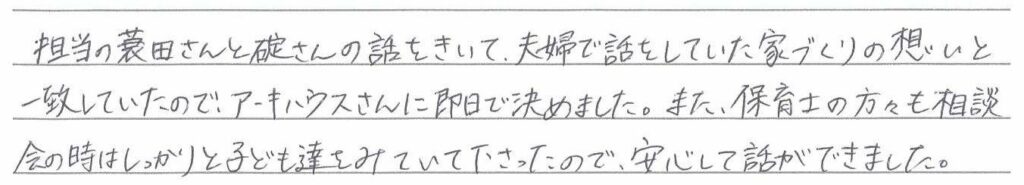 担当の蓑田さんと碇さんの話をきいて、夫婦で話をしていた家づくりの想いと
一致していたので、アーキハウスさんに即日で決めました。また、保育士の方々も相談
会の時はしっかりと子ども達をみていて下さったので、安心して話ができました。